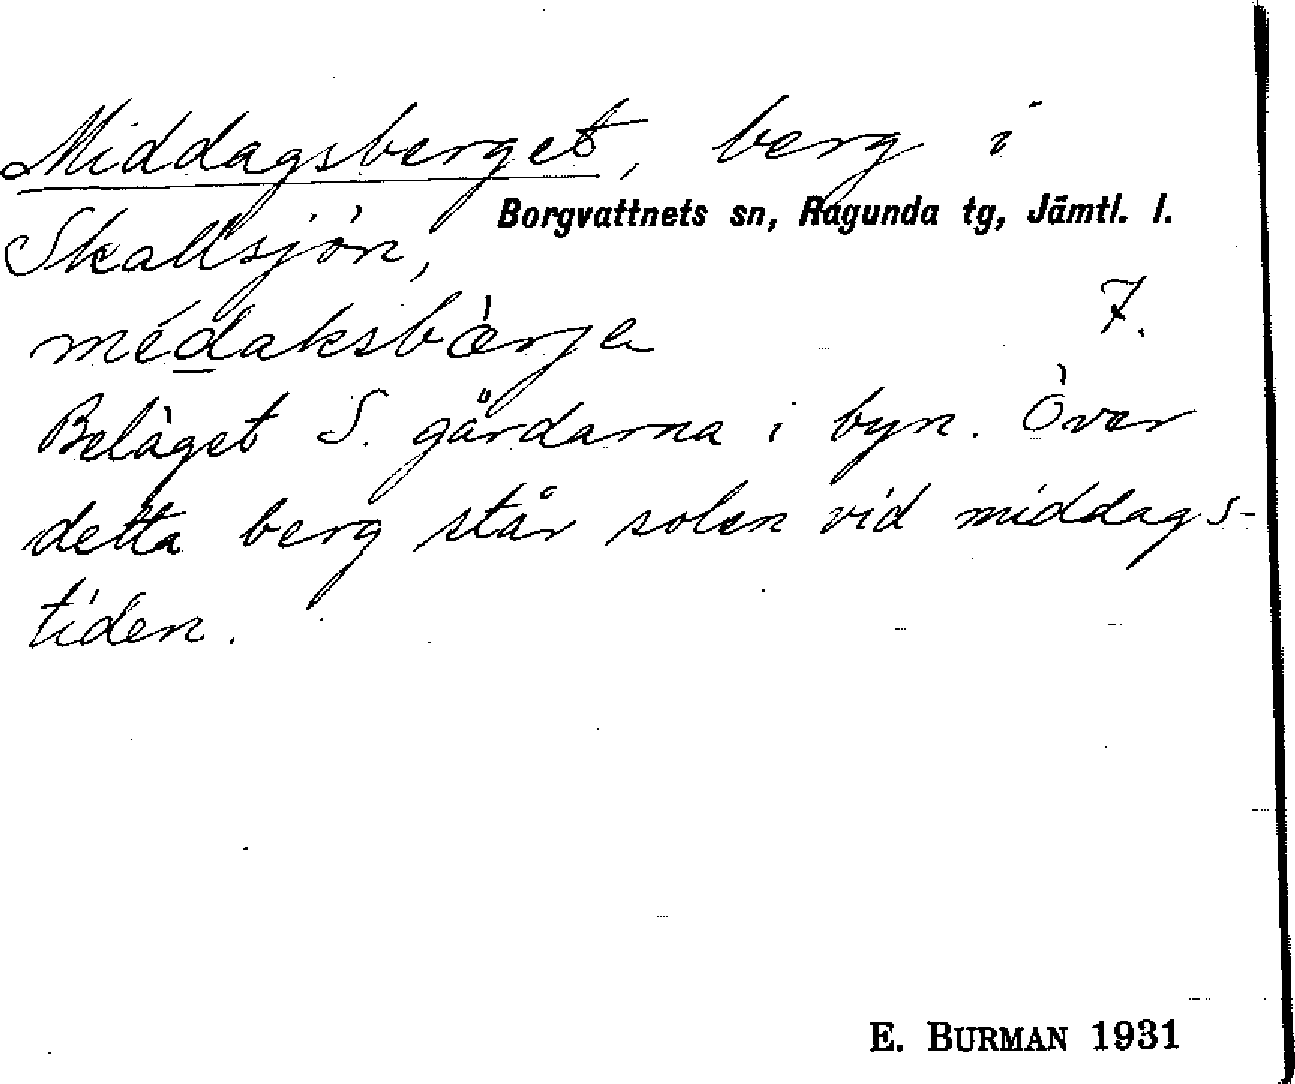 Middagsberget, berg i
Skallsjön, Borgvattnets sn, Ragunda tg, Jämtl. l.
médaksbàrje 7.
Beläget S. gårdarna i byn. Över
detta berg står solen vid middags-
tiden.
E. BURMAN 1931